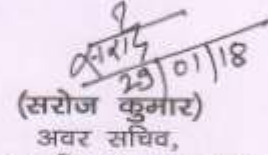 29/01/18
(सरोज कुमार)
अवर सचिव,